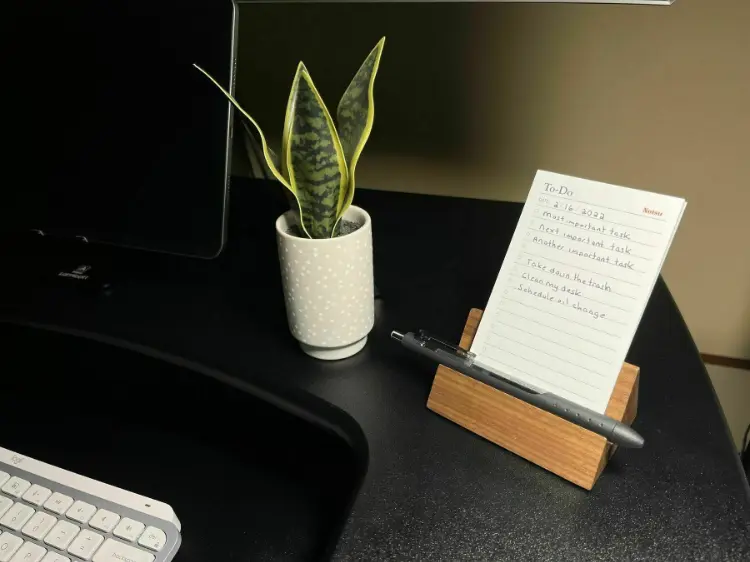 To-Do
2 16 2022
Most important task
Next important task
Another important task
Take down the trash
Clean my desk
Schedule oil change
backspace